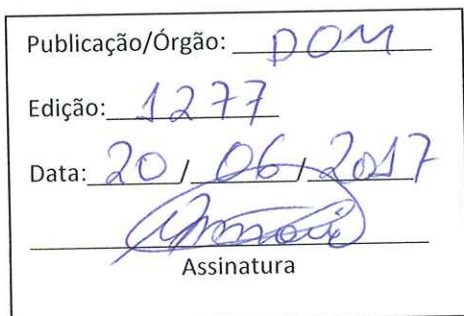 Publicação/Órgão: DOM
Edição: 1277
Data: 20 / 06 / 2017
Assinatura